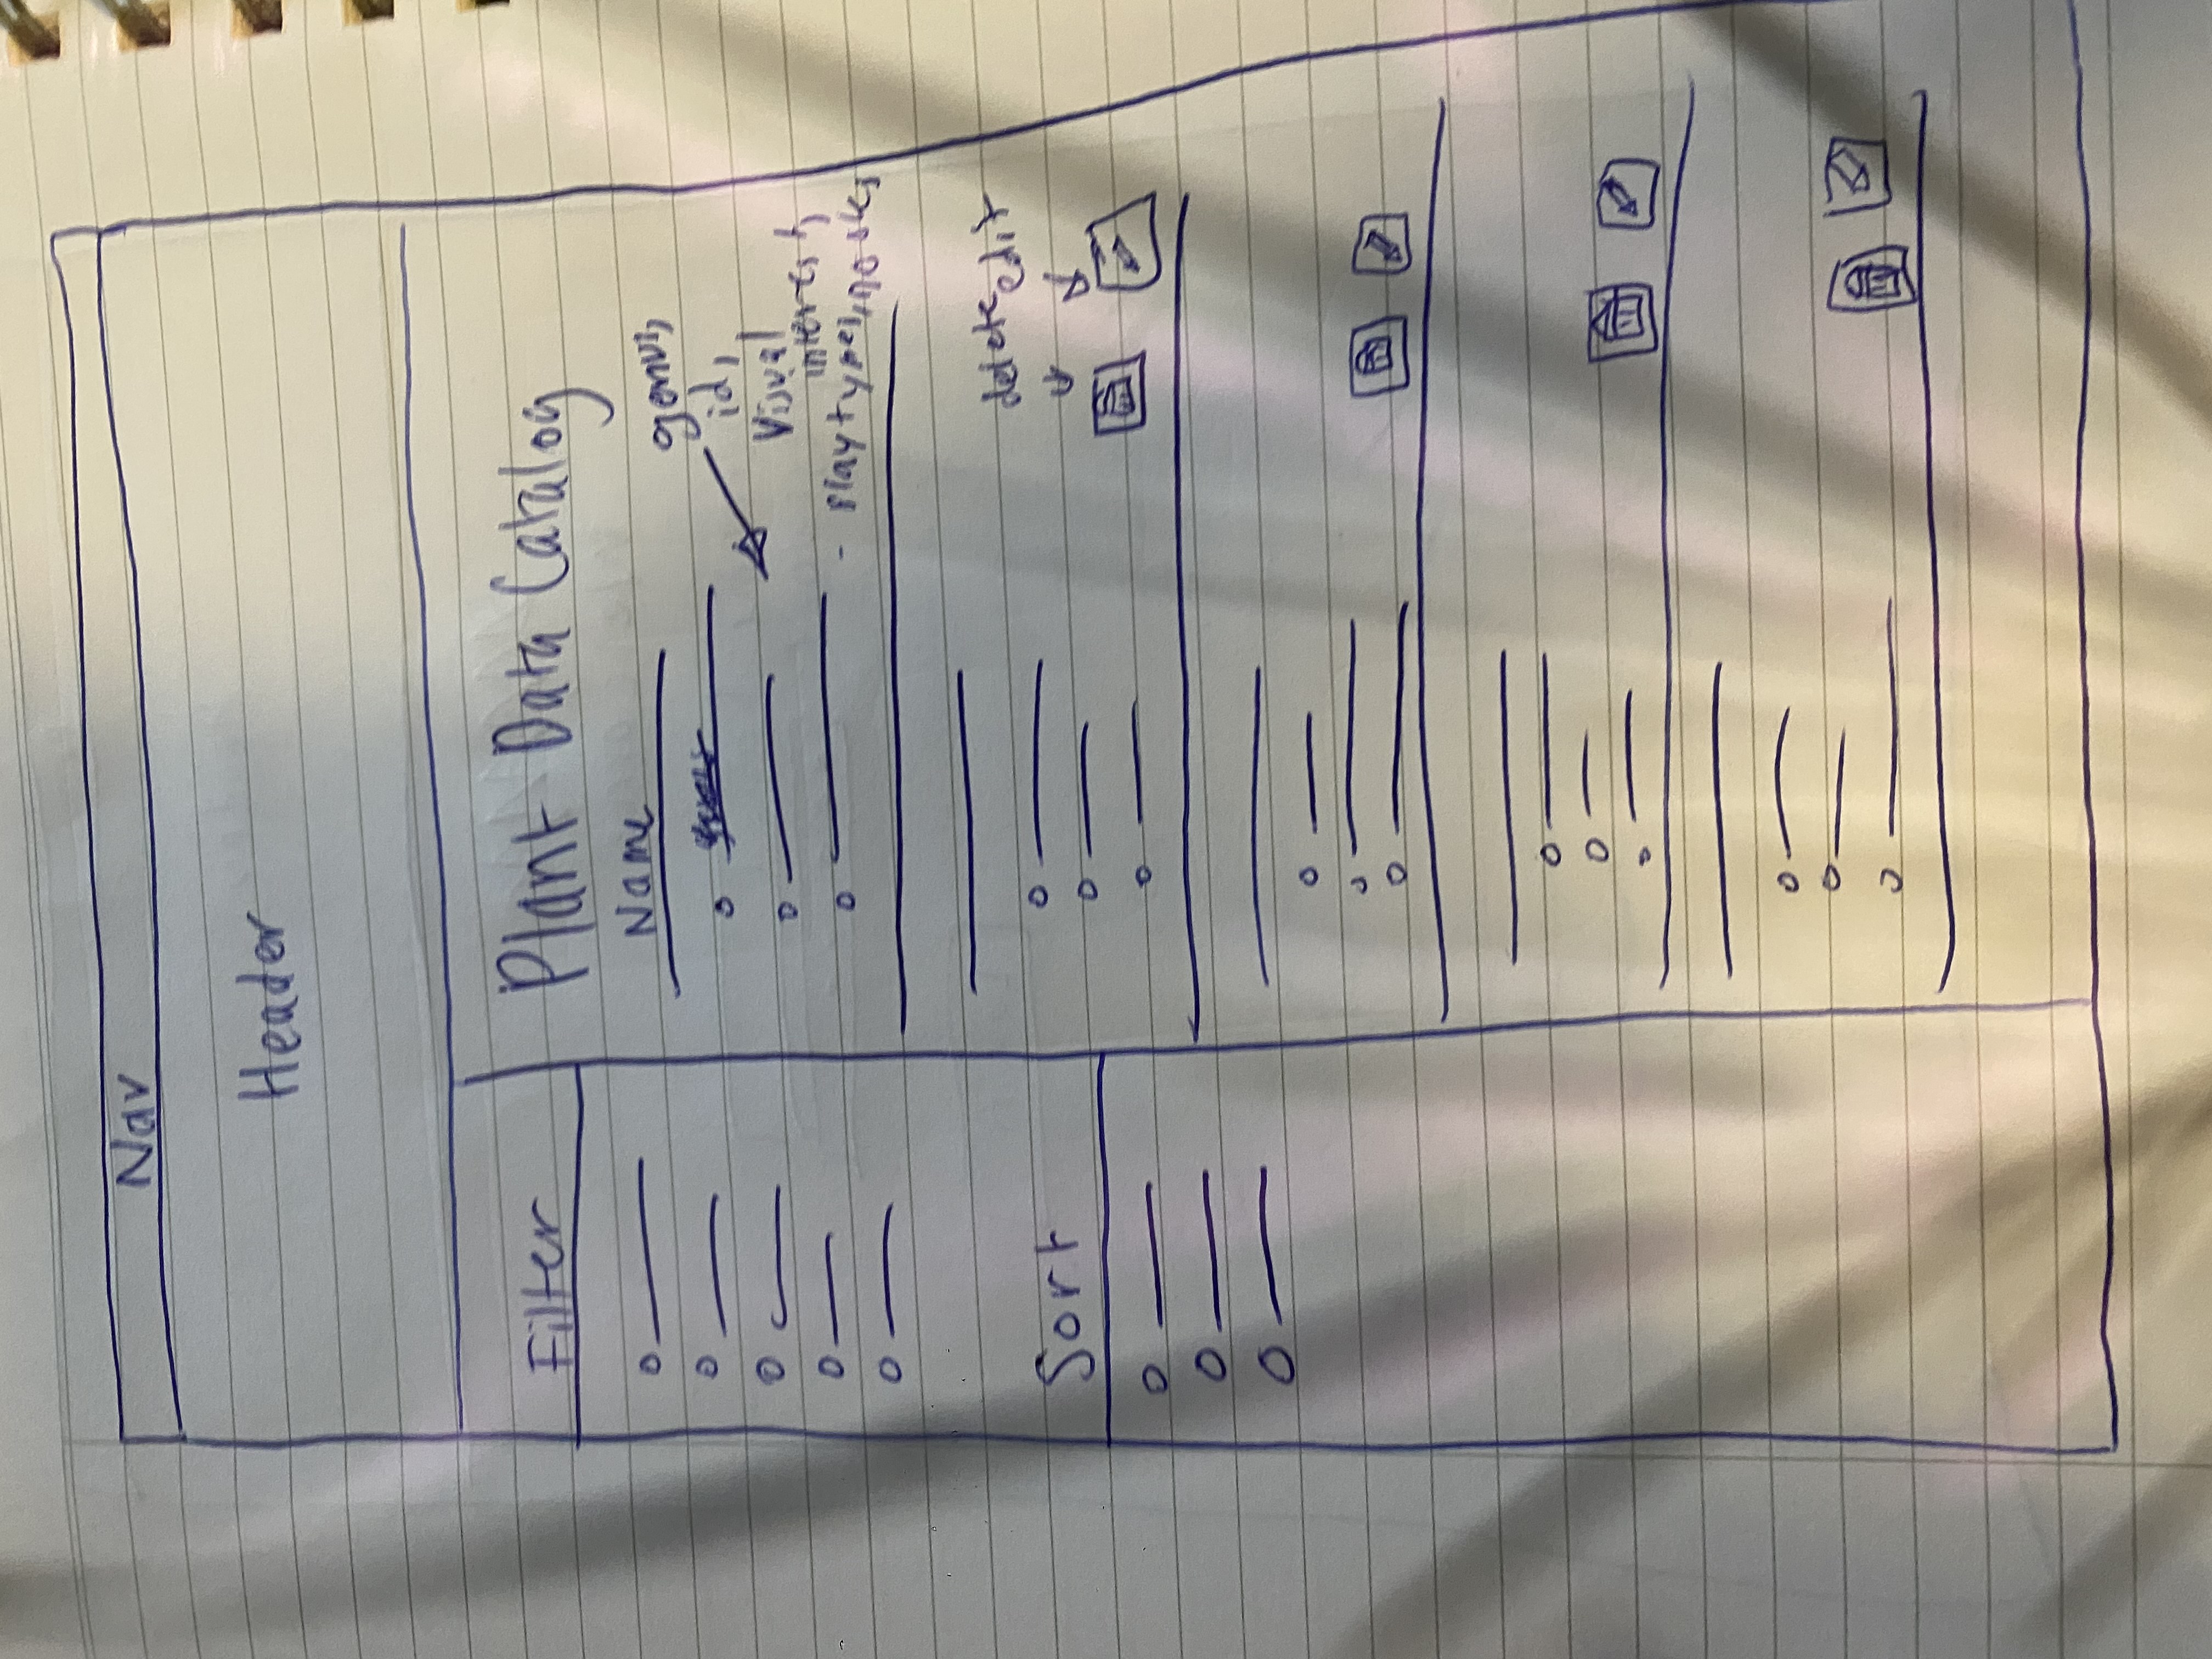 Nav
Header
Filter
Plant Data Catalog
Name
genus,
id,
Visual
interest,
- Play types,
delete edit
Sort